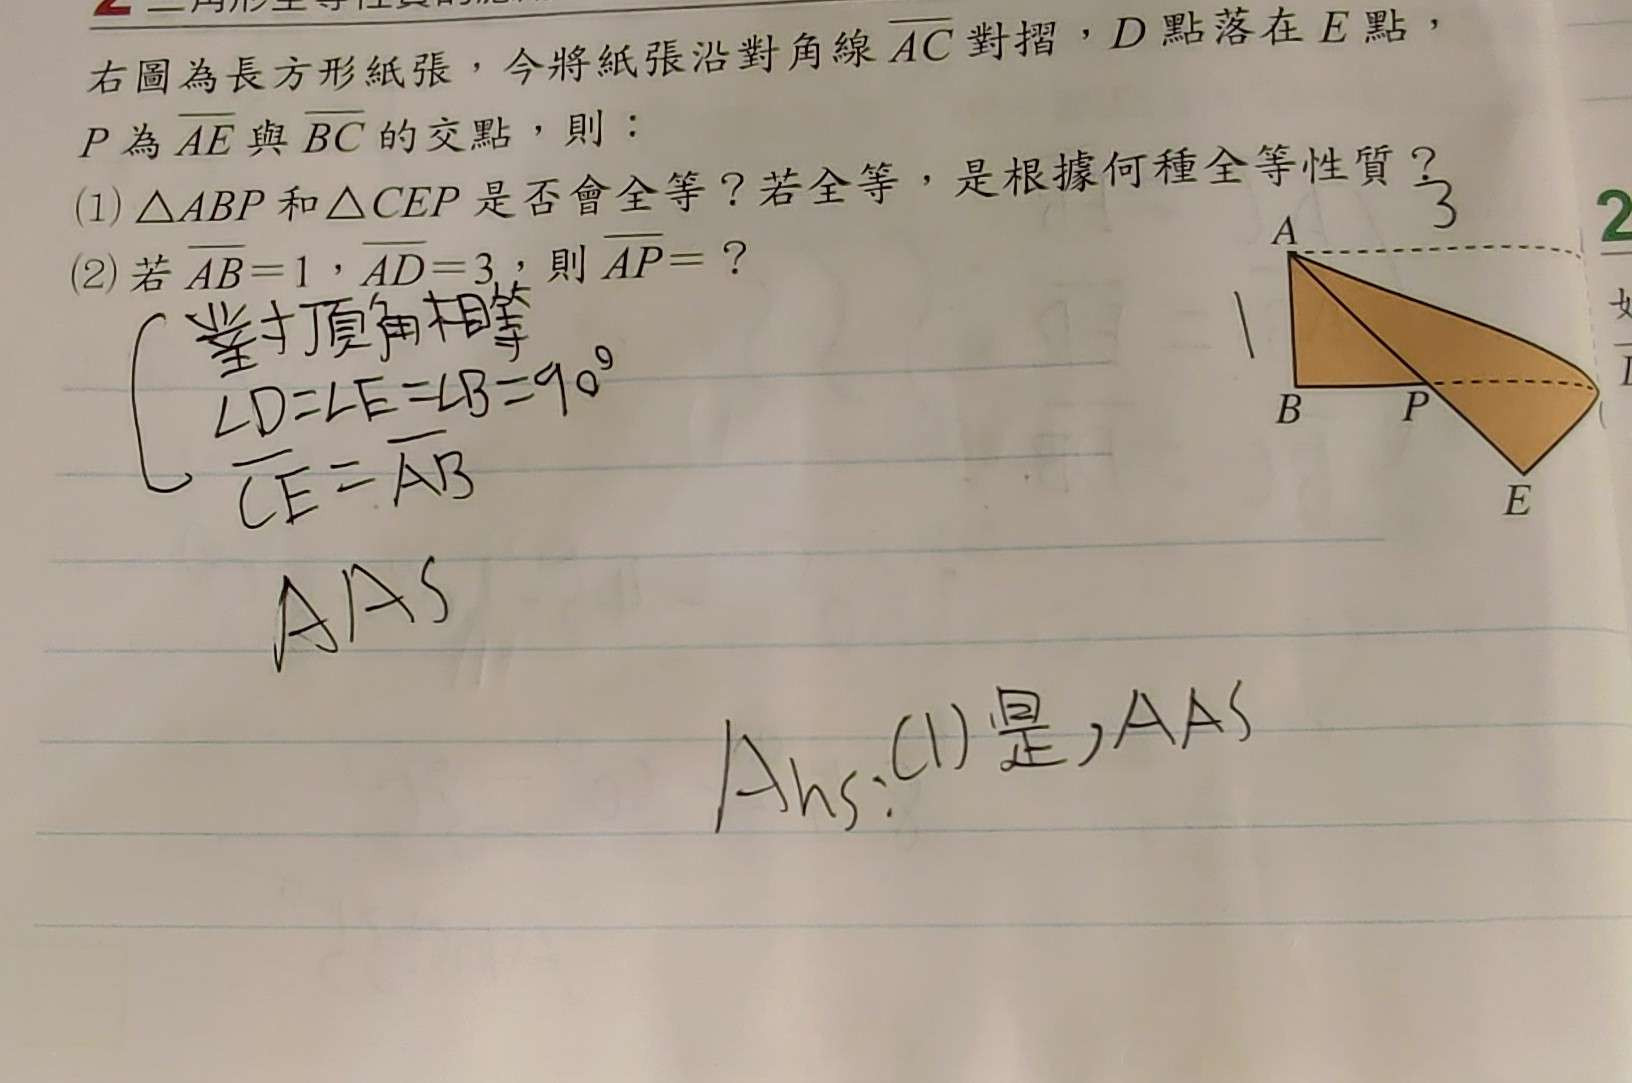 2
右圖為長方形紙張,今將紙張沿對角線 AC 對摺,D 點落在 E 點,
P 為 AE 與 BC 的交點,則:
(1) △ABP 和 △CEP 是否會全等?若全等,是根據何種全等性質?
(2) 若 AB=1,AD=3,則 AP=?
對頂角相等
∠D=∠E=∠B=90°
CE=AB
AAS
Ans:(1)是,AAS
3
A
1
B P
E
2